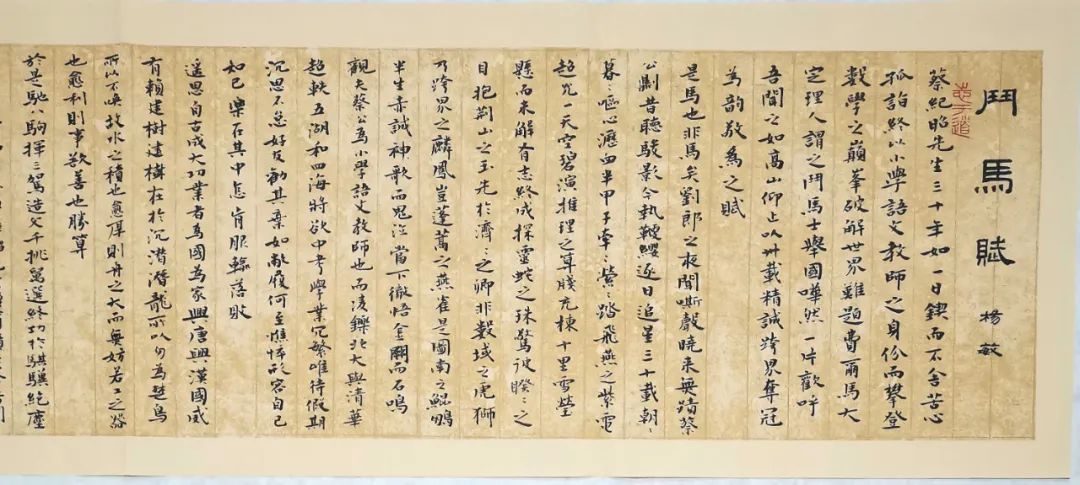 鬥馬賦 楊
志于道
蔡紀昭先生三十年如一日鍥而不舍苦心
孤詣終以小學語文教師之身份而攀登
數學之巔峯破解世界難題費爾馬大
定理人謂之鬥馬士舉國嘩然一片歡呼
吾聞之如高山仰止以卅載精誠跨界奪冠
為韵敬為之賦
是馬也非馬矣劉郎之夜聞嘶聲曉來無蹟蔡
公斸昔聽駿影今執鞭纓逐日追星三十載朝〻
暮〻嘔心瀝血半甲子牽〻縈〻踏飛燕之紫電
超光一天空碧演推理之算牋充棟十里雪瑩
懸而未解有志終成探靈蛇之珠驚彼睽〻之
目抱荊山之玉光於濟〻之卿非數域之虎獅
乃跨界之麟鳳豈蓬蒿之燕雀是圖南之鯤鵬
半生赤誠神歌而鬼泣當下徹悟金開而石鳴
觀夫蔡公為小學語文教師也而凌鑠北大與清華
超軼五湖和四海將欲中考學業冗繁唯待假期
沉思不怠好友勸其棄如敝履何至憔悴形容自己
如已樂石其中怎肯服輸落敗
遥思自古成大功業者為國為家興唐興漢國威
有賴建樹建樹在於沉潛潛龍所以勿為楚鳥
所以不喚故水之積也愈厚則舟之大而無妨若工之
也愈利則事欲善也勝算
於是馳八駒揮三駕造父千挑萬選終功於騏驥絕塵